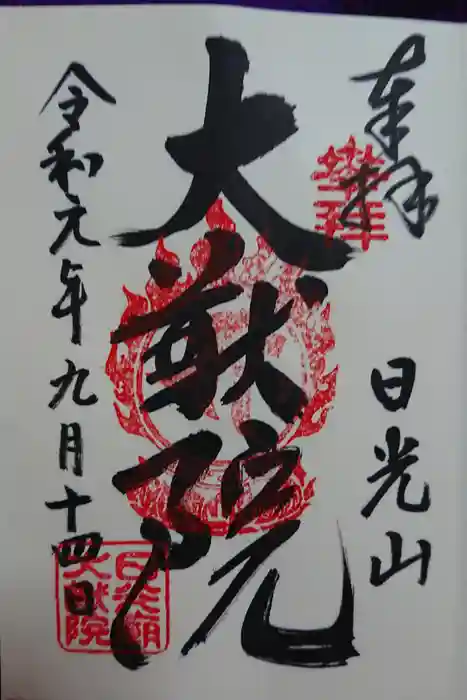 奉拝
日光山
大猷院
令和元年九月十四日
日光廟
大猷院